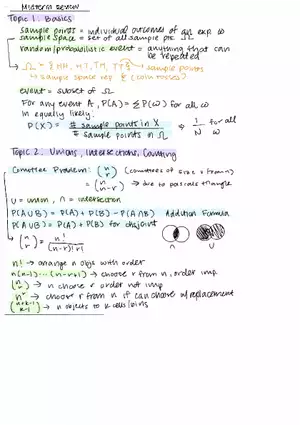 MIDTERM REVIEW
Topic 1. Basics
sample points = individual outcomes of an exp ω
sample space = set of all sample pts Ω
random/probabilistic event = anything that can
be repeated
Ω = { HH, HT, TH, TT } → sample points
↳ sample space rep (coin tosses)
event = subset of Ω
For any event A, P(A) = Σ P(ω) for all ω
in equally likely:
P(X) = # sample points in X / # sample points in Ω ⇒ 1/N for all ω
Topic 2. Unions, Intersections, Counting
Committee Problem: (n r) (committees of size r from n)
= (n n-r) → due to pascals triangle
U = union, ∩ = intersection
P(A∪B) = P(A) + P(B) - P(A∩B) Addition Formula
P(A∪B) = P(A) + P(B) for disjoint
(n r) = n! / (n-r)! r!
∩ U
n! → arrange n objs with order
n(n-1)...(n-r+1) → choose r from n, order imp
(n r) → n choose r order not imp
n^r → choose r from n if can choose w/ replacement
(n+k-1 k-1) → n objects to k cells/bins